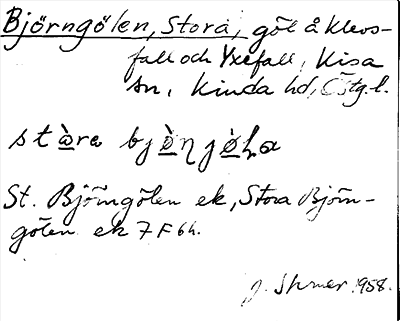 Björngölen, Stora, göl å Klevs-
fall och Yxefall, Kisa
sn, Kinda hd, Östg.l.
stὼra bjὼŋjὼla
St. Björngölen ek, Stora Björn-
gölen ek 7 F 6h.
1958.